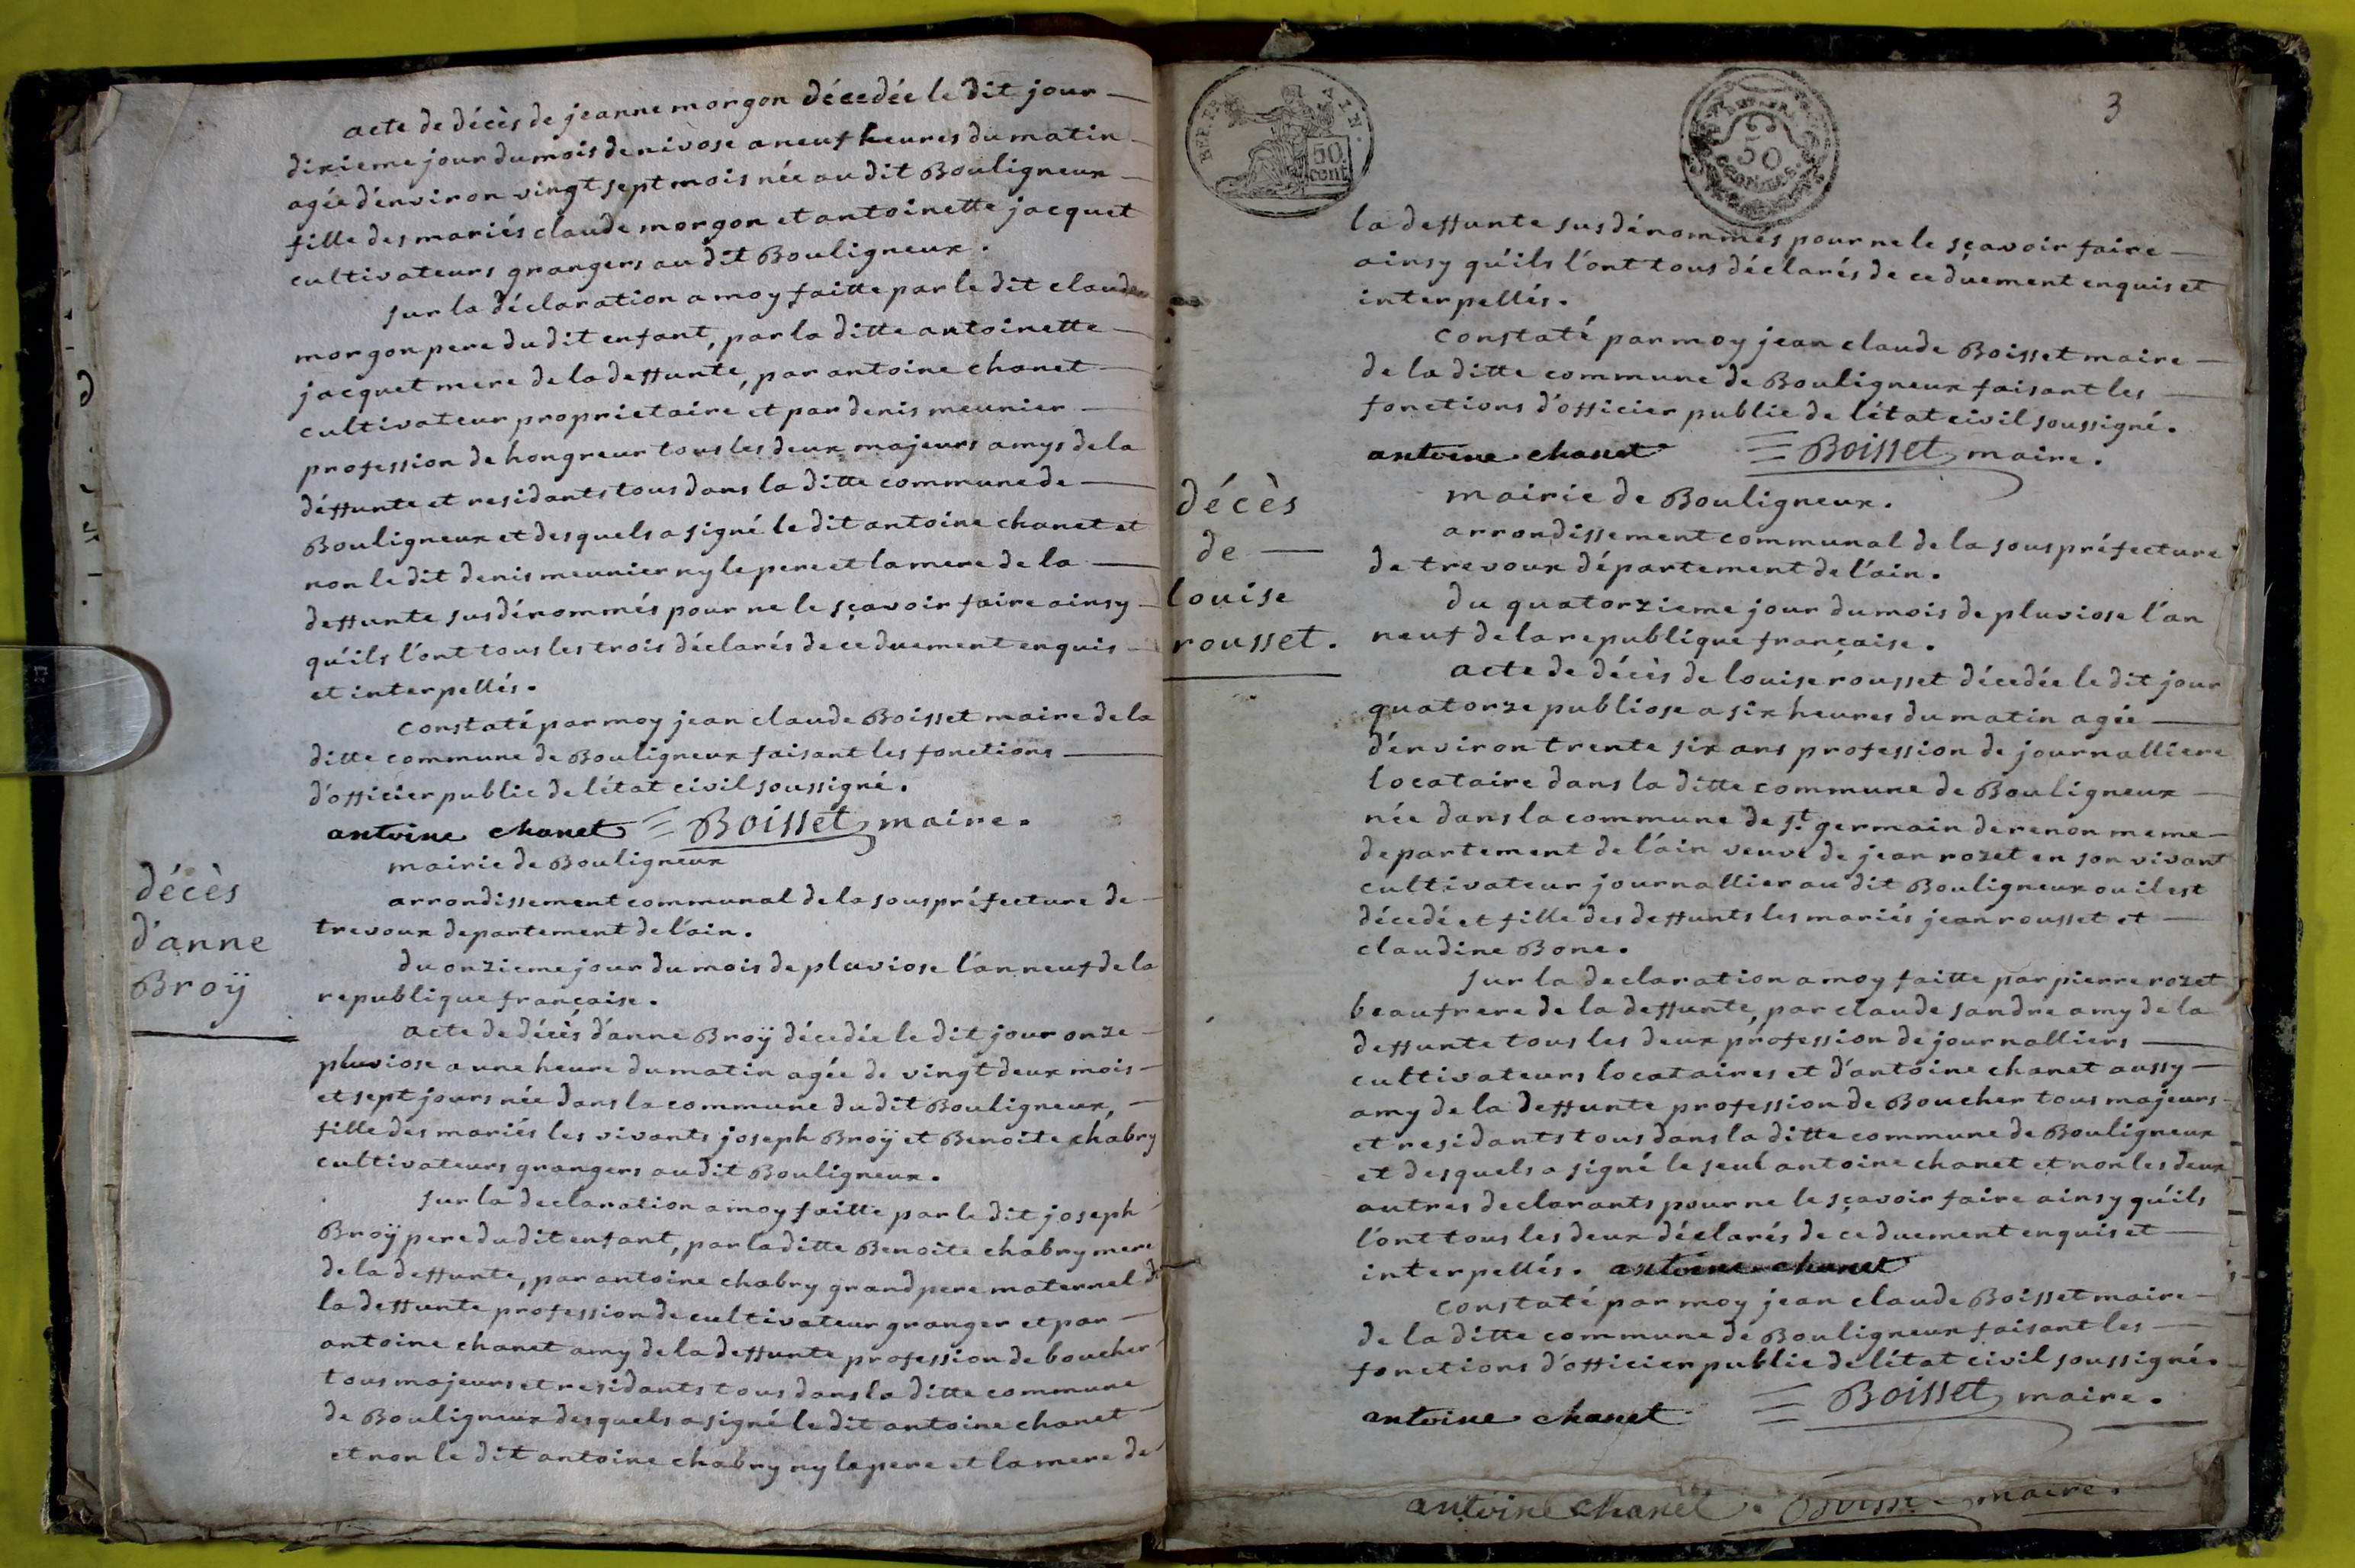 acte de décès de jeanne morgon décedée le dit jour
dixieme jour du mois de nivose a neuf heures du matin
agée d'environ vingt sept mois née au dit Bouligneux
fille des mariés claude morgon et antoinette jacquet
cultivateurs grangers au dit Bouligneux.
sur la déclaration a moy faitte par le dit claude
morgon pere du dit enfant, par la ditte antoinette
jacquet mere de la deffunte, par antoine chanet
cultivateur proprietaire et par denis meunier
profession de hongreur tous les deux majeurs amys de la
déffunte et residants tous dans la ditte commune de
Bouligneux et desquels a signé le dit antoine chanet et
non le dit denis meunier ny le pere et la mere de la
deffunte susdénommés pour ne le sçavoir faire ainsy
qu'ils l'ont tous les trois déclarés de ce duement enquis
et interpellés.
constaté par moy jean claude Boisset maire de la
ditte commune de Bouligneux faisant les fonctions
d'officier public de l'état civil soussigné.
antoine chanet Boisset maire.
mairie de Bouligneux
arrondissement communal de la souspréfecture de
trevoux departement de l'ain.
décès
d'anne
Broÿ
du onzieme jour du mois de pluviose l'an neuf de la
republique française.
acte de décès d'anne Broÿ décedée le dit jour onze
pluviose a une heure du matin agée de vingt deux mois
et sept jours née dans la commune du dit Bouligneux,
fille des mariés les vivants joseph Broÿ et Benoite chabry
cultivateurs grangers au dit Bouligneux.
sur la declaration a moy faitte par le dit joseph
Broÿ pere du dit enfant, par la ditte Benoite chabry mere
de la deffunte, par antoine chabry grand pere maternel de
la deffunte profession de cultivateur granger et par
antoine chanet amy de la deffunte profession de boucher
tous majeurs et residants tous dans la ditte commune
de Bouligneux desquels a signé le dit antoine chanet
et non le dit antoine chabry ny le pere et la mere de
REP. FRA
50
cent
50
3
la deffunte susdénommés pour ne le sçavoir faire
ainsy qu'ils l'ont tous déclarés de ce duement enquis et
interpellés.
constaté par moy jean claude Boisset maire
de la ditte commune de Bouligneux faisant les
fonctions d'officier public de l'état civil soussigné.
antoine chanet Boisset maire.
décès
de
louise
rousset.
mairie de Bouligneux.
arrondissement communal de la souspréfecture
de trevoux département de l'ain.
du quatorzieme jour du mois de pluviose l'an
neuf de la republique française.
acte de décès de louise rousset décedée le dit jour
quatorze publiose a six heures du matin agée
d'environ trente six ans profession de journalliere
locataire dans la ditte commune de Bouligneux
née dans la commune de st. germain de renon meme
departement de l'ain veuve de jean rozet en son vivant
cultivateur journallier au dit Bouligneux ou il est
décedé et fille des deffunts les mariés jean rousset et
claudine Bone.
sur la declaration a moy faitte par pierre rozet
beaufrere de la deffunte, par claude sandre amy de la
deffunte tous les deux profession de journalliers
cultivateurs locataires et d'antoine chanet aussy
amy de la deffunte profession de Boucher tous majeurs
et residants tous dans la ditte commune de Bouligneux
et desquels a signé le seul antoine chanet et non les deux
autres declarants pour ne le sçavoir faire ainsy qu'ils
l'ont tous les deux déclarés de ce duement enquis et
interpellés. antoine chanet
constaté par moy jean claude Boisset maire
de la ditte commune de Bouligneux faisant les
fonctions d'officier public de l'état civil soussigné.
antoine chanet Boisset maire.
antoine chanet maire.